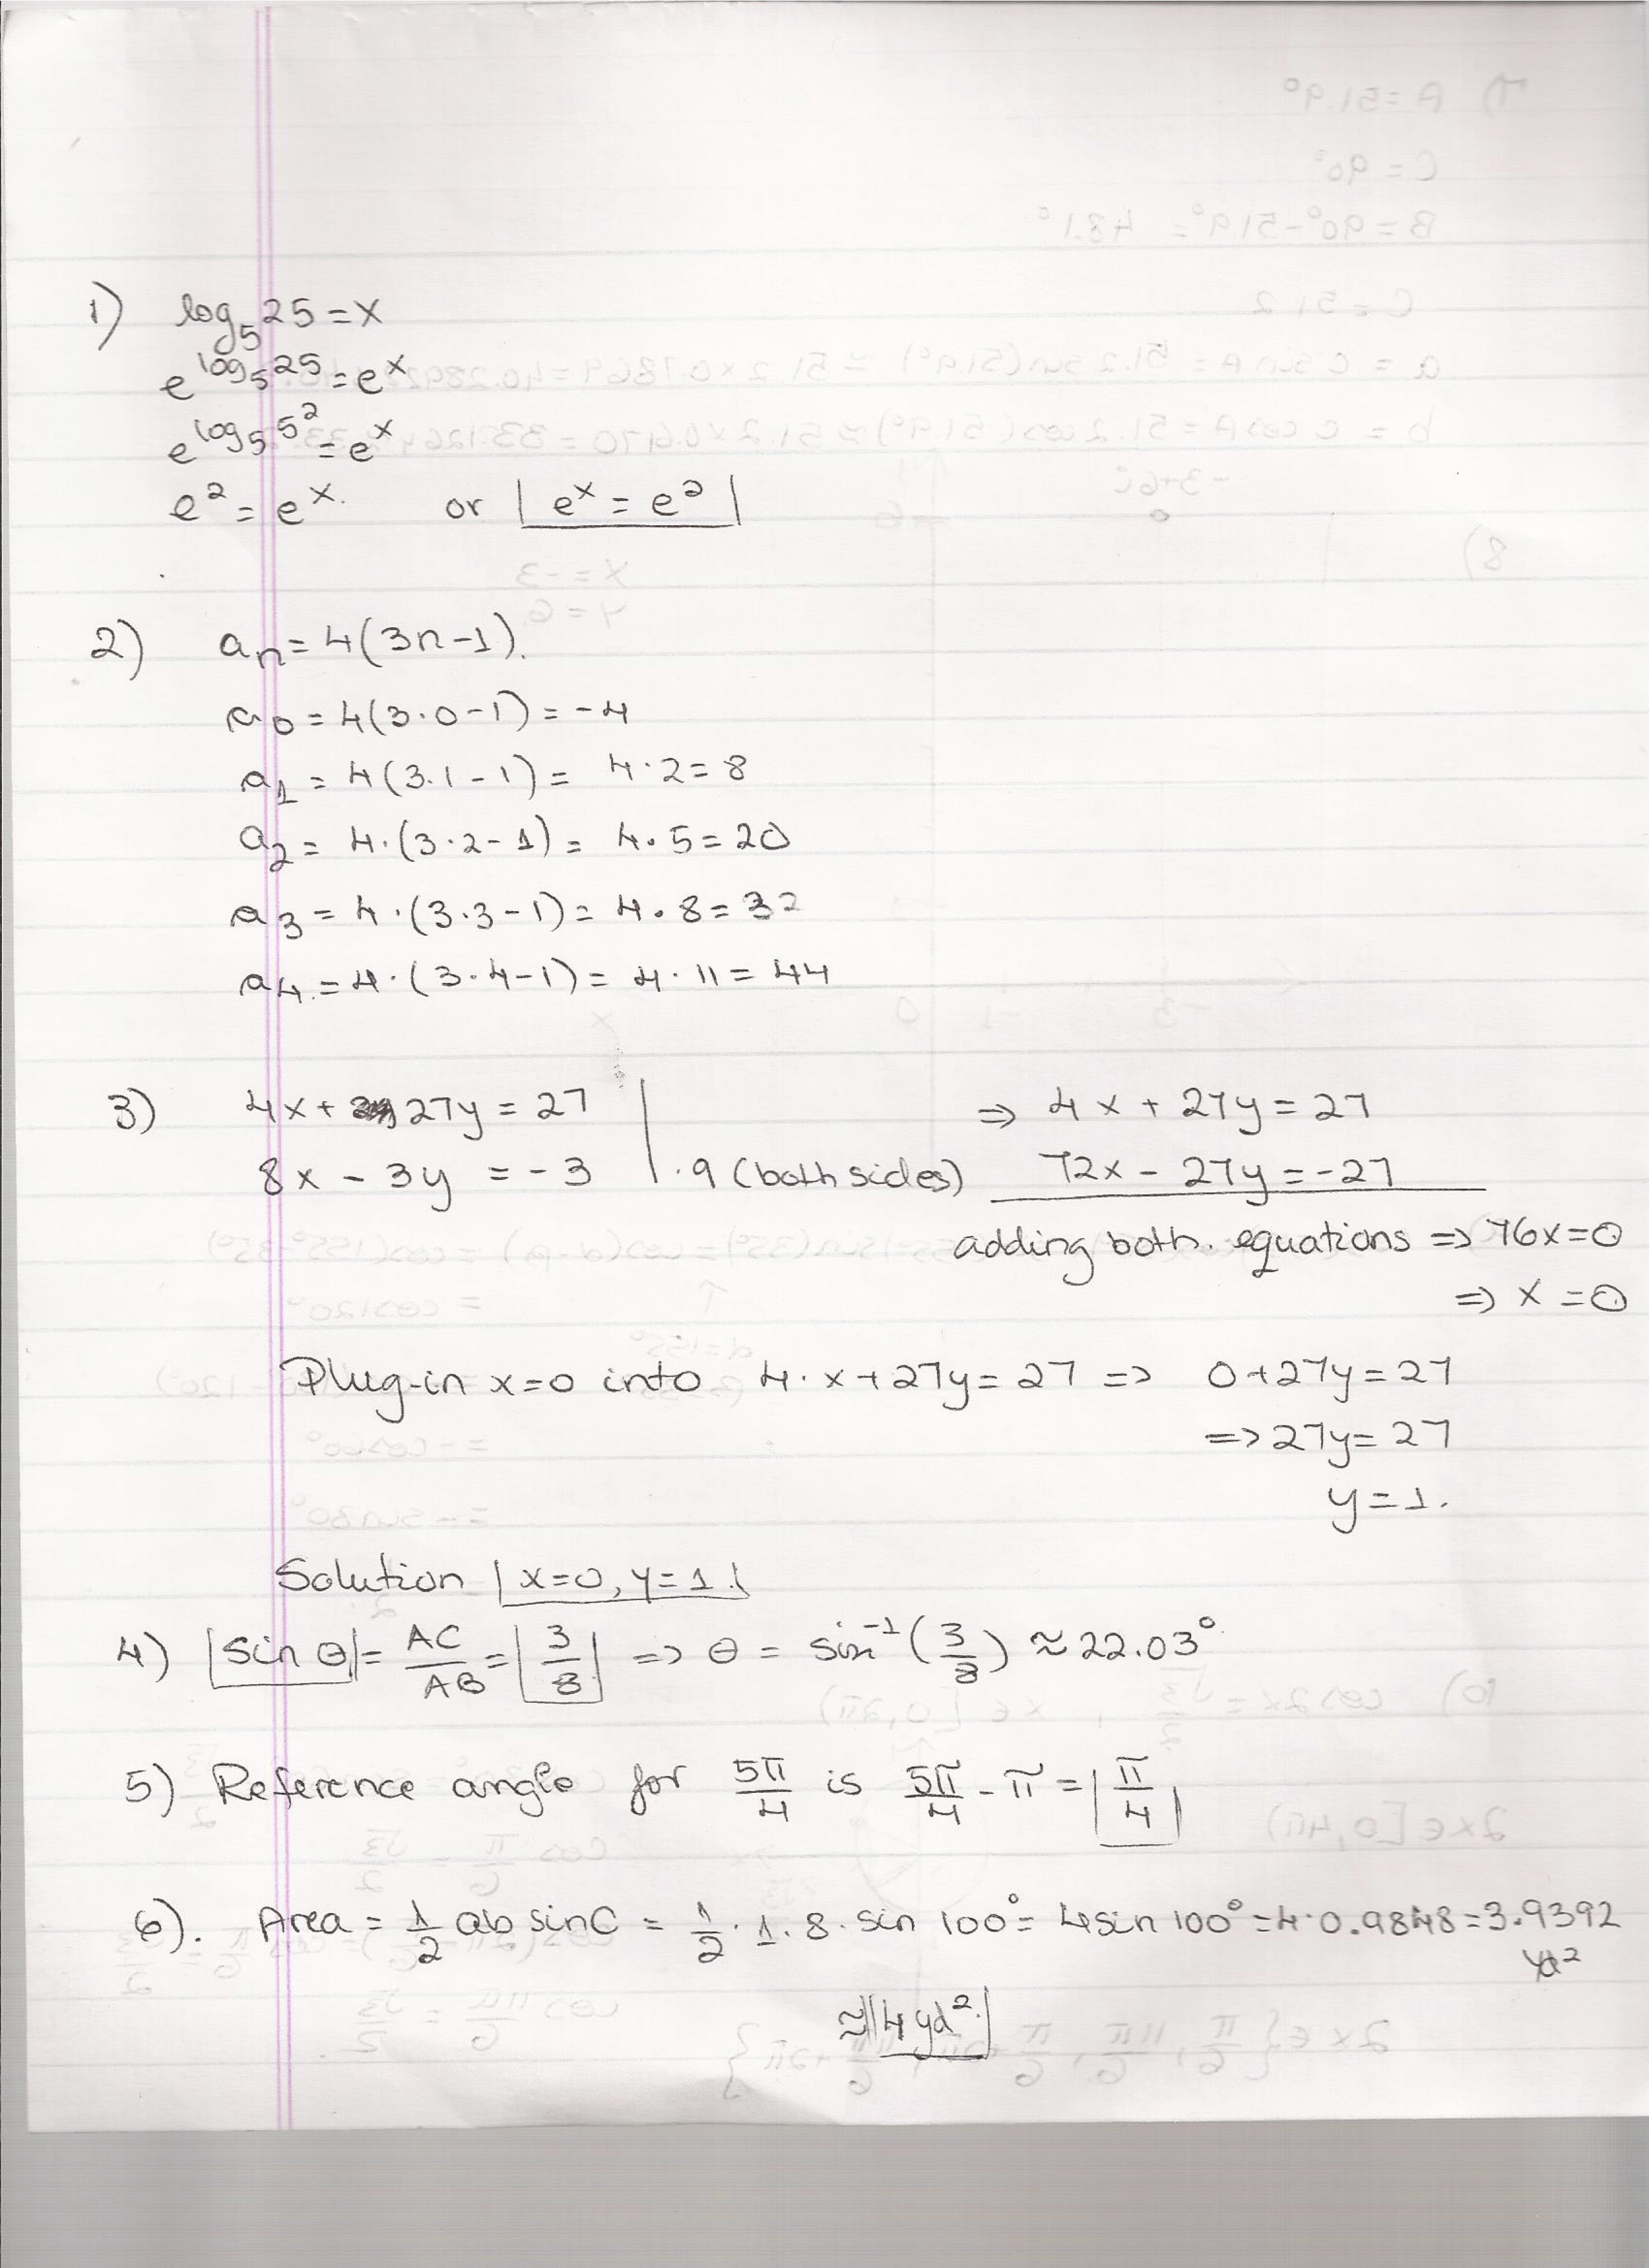 1) log₅25 = x
e^(log₅25) = e^x
e^(log₅5²) = e^x
e² = e^x. or e^x = e²
2) aₙ = 4(3n-1).
a₀ = 4(3·0-1) = -4
a₁ = 4(3·1-1) = 4·2 = 8
a₂ = 4·(3·2-1) = 4·5 = 20
a₃ = 4·(3·3-1) = 4·8 = 32
a₄ = 4·(3·4-1) = 4·11 = 44
3) 4x + 27y = 27 | ⇒ 4x + 27y = 27
8x - 3y = -3 | ·9 (both sides) 72x - 27y = -27
adding both. equations ⇒ 76x=0
⇒ x = 0
Plug-in x=0 into 4·x+27y=27 ⇒ 0+27y=27
⇒ 27y=27
y=1.
Solution x=0, y=1.
4) sin θ = AC/AB = 3/8 ⇒ θ = sin⁻¹(3/8) ≈ 22.03°
5) Reference angle for 5π/4 is 5π/4 - π = π/4
6). Area = 1/2 ab sinC = 1/2·1·8·sin 100° = 4sin 100° = 4·0.9848 = 3.9392
yd²
≈ 4 yd².